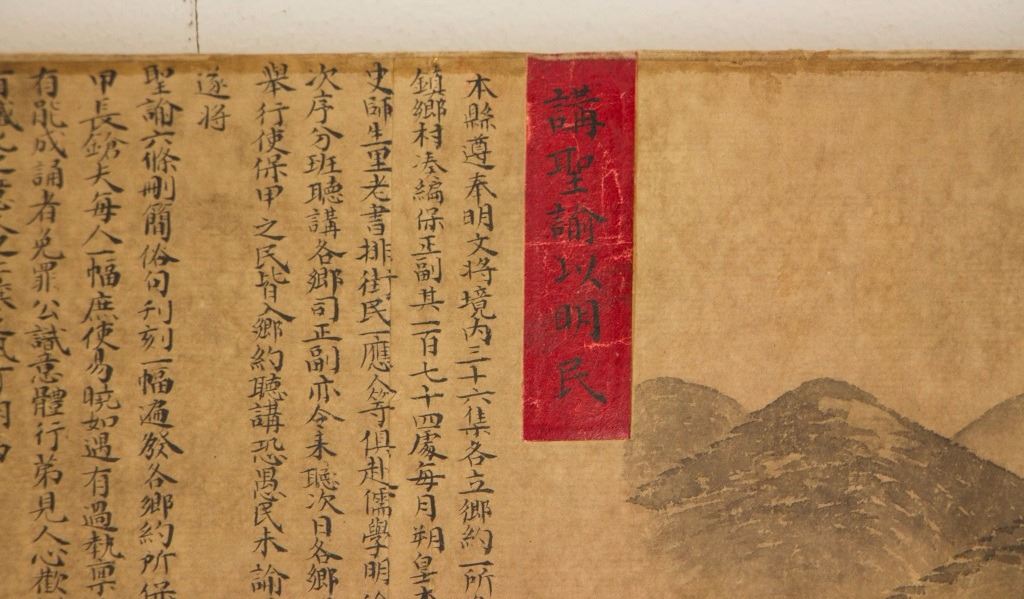 講聖諭以明民
本縣遵奉明文將境內三十六集各立鄉約一所
鎮鄉村凑編保正副其一百七十四處每月朔望本
史師生里老書排街民一應人等俱赴儒學明
次序分班聽講各鄉司正副亦令来聽次日各鄉
舉行使保甲之民皆入鄉約聽講恐愚民未諭
遂將
聖諭六條刪簡俗句刊刻一幅遍發各鄉約所保
甲長鎗夫每人一幅庶使易曉如遇有過執稟
有能成誦者免罪公識意體行弟見人心歡